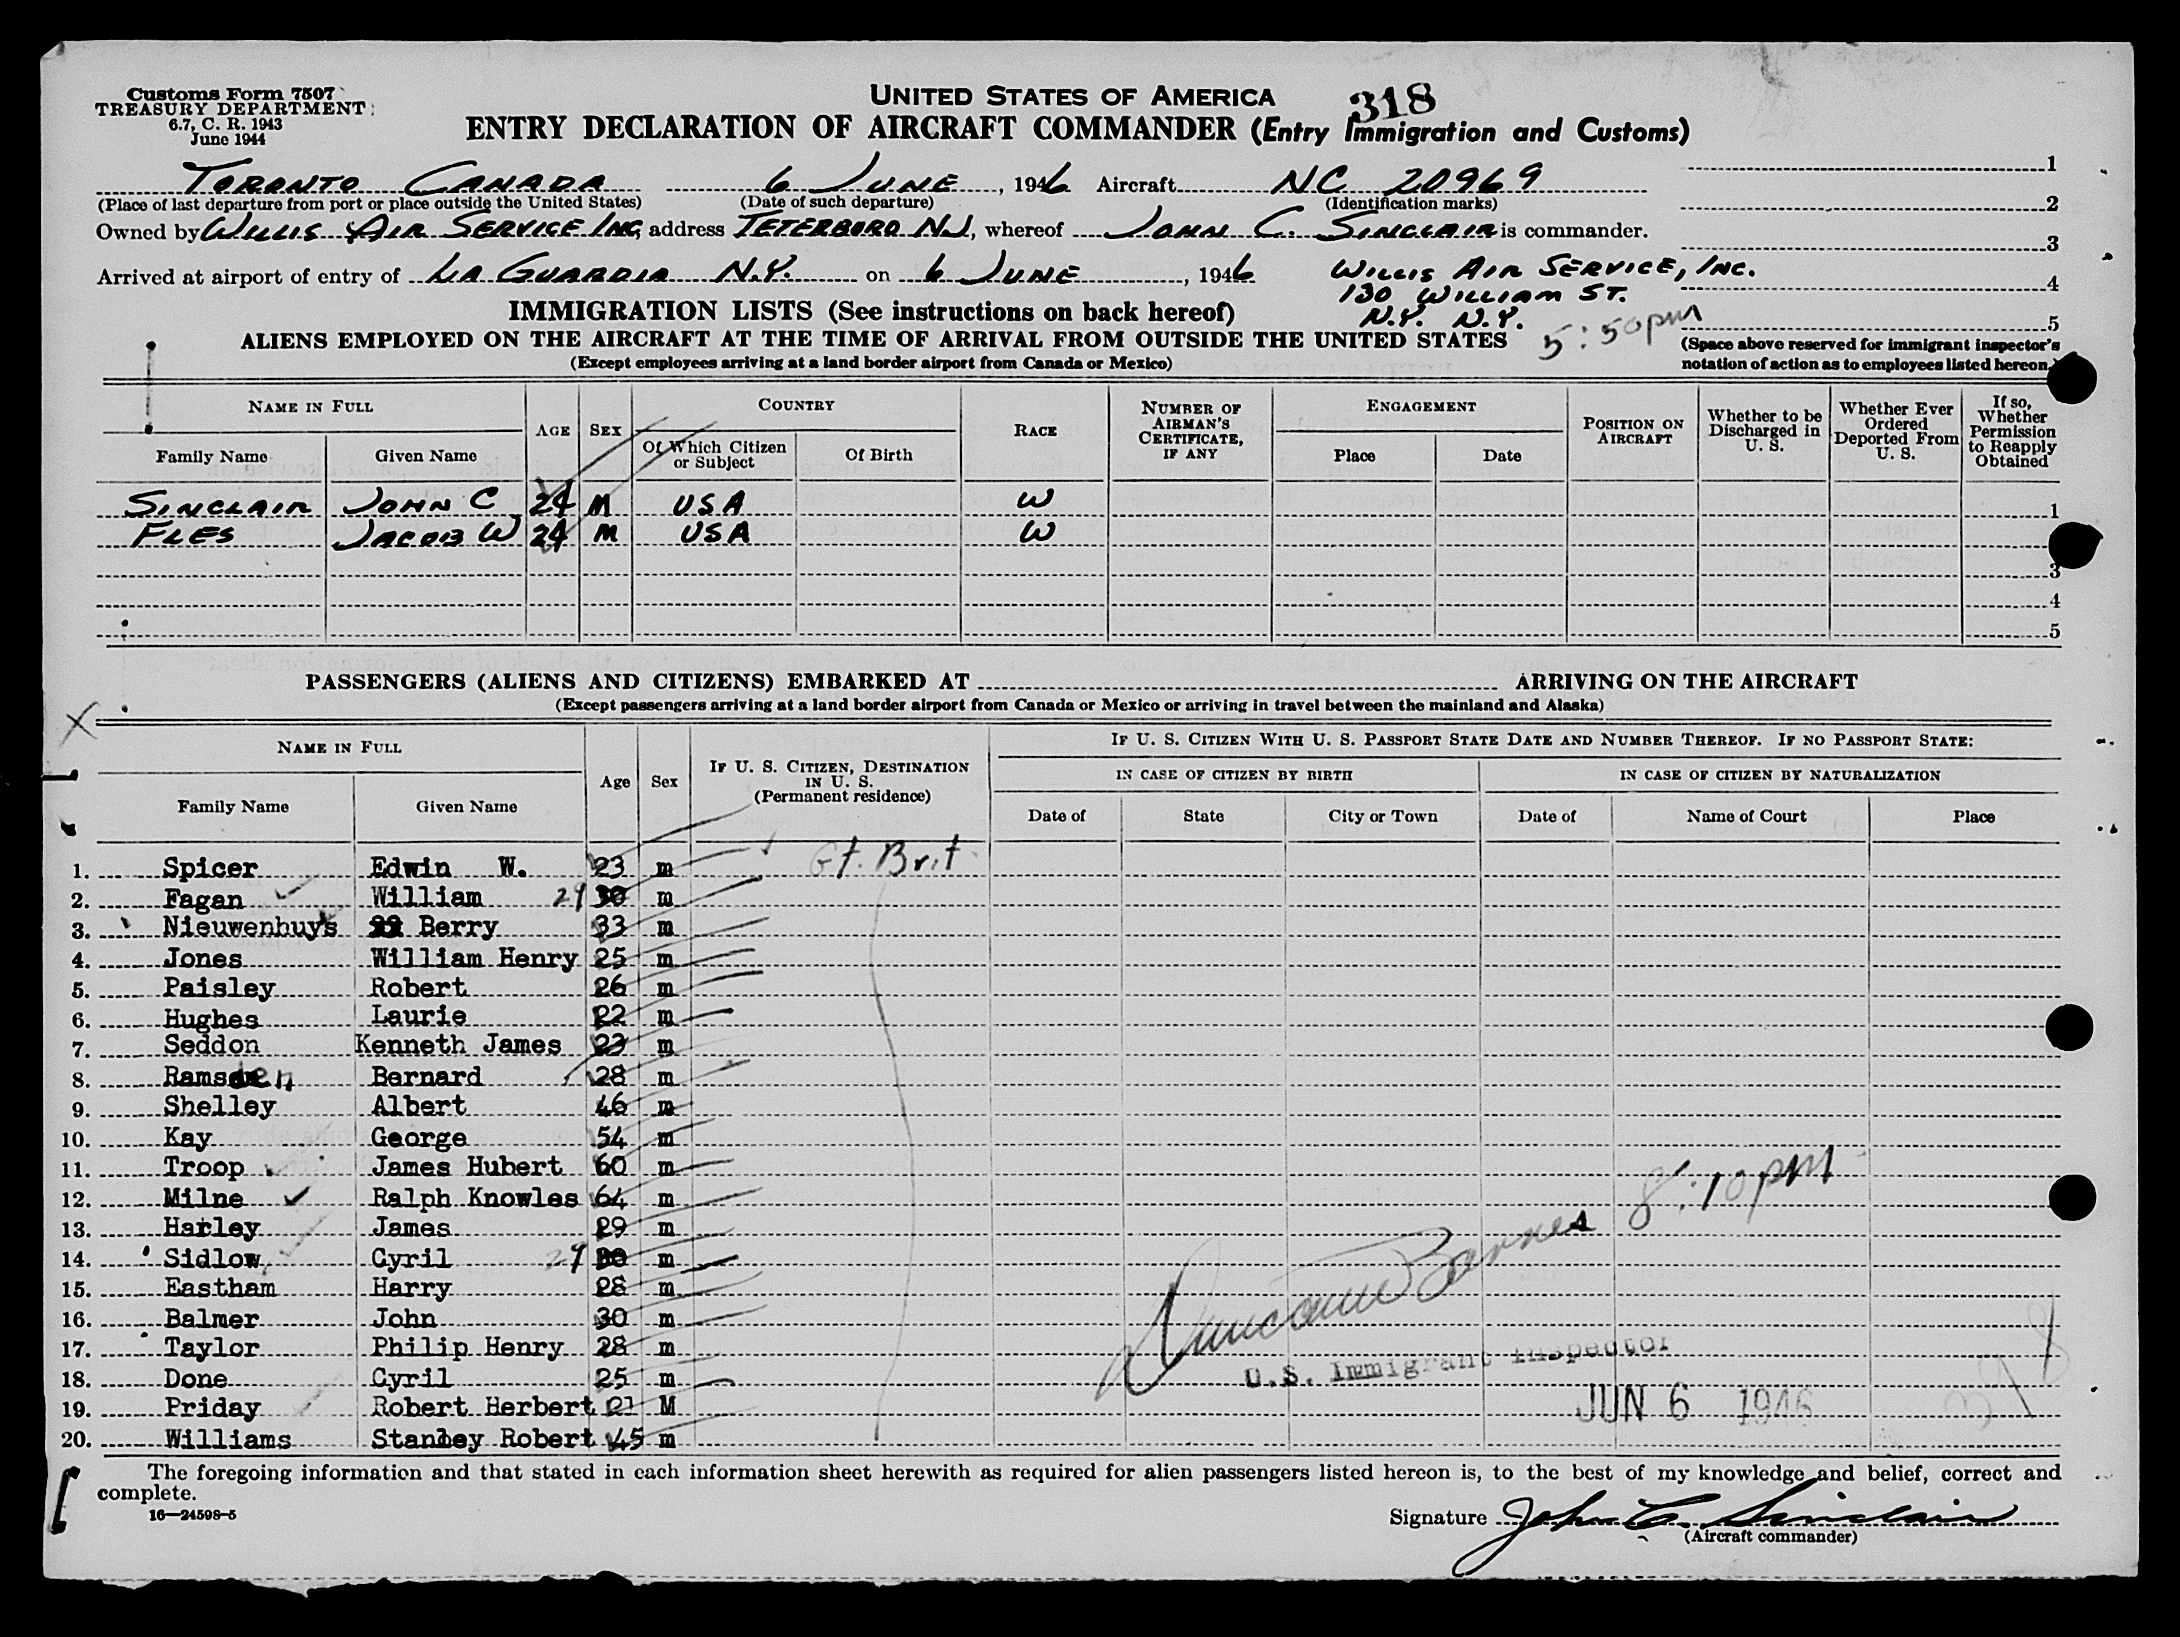 Customs Form 7507
TREASURY DEPARTMENT
6.7, C. R. 1943
June 1944
UNITED STATES OF AMERICA
318
ENTRY DECLARATION OF AIRCRAFT COMMANDER (Entry Immigration and Customs)
TORONTO CANADA 6 JUNE, 1946 Aircraft NC 20969 1
(Place of last departure from port or place outside the United States) (Date of such departure) (Identification marks) 2
Owned by WILLIS AIR SERVICE INC, address TETERBORO NJ, whereof JOHN C. SINCLAIR is commander. 3
Arrived at airport of entry of LA GUARDIA N.Y. on 6 JUNE, 1946 WILLIS AIR SERVICE, INC. 4
130 WILLIAM ST.
N.Y. N.Y. 5:50pm 5
IMMIGRATION LISTS (See instructions on back hereof)
ALIENS EMPLOYED ON THE AIRCRAFT AT THE TIME OF ARRIVAL FROM OUTSIDE THE UNITED STATES
(Except employees arriving at a land border airport from Canada or Mexico)
(Space above reserved for immigrant inspector's
notation of action as to employees listed hereon.)
NAME IN FULL AGE SEX COUNTRY RACE NUMBER OF AIRMAN'S CERTIFICATE, IF ANY ENGAGEMENT POSITION ON AIRCRAFT Whether to be Discharged in U. S. Whether Ever Ordered Deported From U. S. If so, Whether Permission to Reapply Obtained
Family Name Given Name Of Which Citizen or Subject Of Birth Place Date
SINCLAIR JOHN C 24 M USA W 1
FLES JACOB W 24 M USA W
3
4
5
PASSENGERS (ALIENS AND CITIZENS) EMBARKED AT ARRIVING ON THE AIRCRAFT
(Except passengers arriving at a land border airport from Canada or Mexico or arriving in travel between the mainland and Alaska)
X
NAME IN FULL Age Sex IF U. S. CITIZEN, DESTINATION IN U. S. (Permanent residence) IF U. S. CITIZEN WITH U. S. PASSPORT STATE DATE AND NUMBER THEREOF. IF NO PASSPORT STATE:
IN CASE OF CITIZEN BY BIRTH IN CASE OF CITIZEN BY NATURALIZATION
Family Name Given Name Date of State City or Town Date of Name of Court Place
1. Spicer Edwin W. 23 m Gt. Brit.
2. Fagan William 29 30 m
3. Nieuwenhuys Berry 33 m
4. Jones William Henry 25 m
5. Paisley Robert 26 m
6. Hughes Laurie 22 m
7. Seddon Kenneth James 23 m
8. Ramsden Bernard 28 m
9. Shelley Albert 46 m
10. Kay George 54 m
11. Troop James Hubert 60 m
12. Milne Ralph Knowles 64 m 8:10pm
13. Harley James 29 m
14. Sidlow Cyril 29 30 m
15. Eastham Harry 28 m
16. Balmer John 30 m
17. Taylor Philip Henry 28 m
18. Done Cyril 25 m
19. Priday Robert Herbert 21 M
20. Williams Stanley Robert 45 m
Duncan Barnes
U.S. Immigrant Inspector
JUN 6 1946
The foregoing information and that stated in each information sheet herewith as required for alien passengers listed hereon is, to the best of my knowledge and belief, correct and
complete.
16—24598-5
Signature John C. Sinclair
(Aircraft commander)